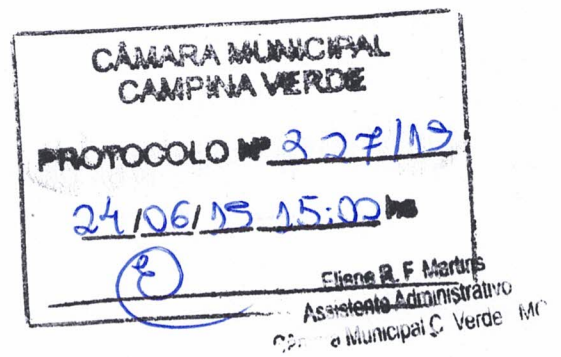 CÂMARA MUNICIPAL
CAMPINA VERDE
PROTOCOLO Nº 227/19
24/06/19 15:00 hs
Eliane R. F. Martins
Assistente Administrativo
Municipal C. Verde MG